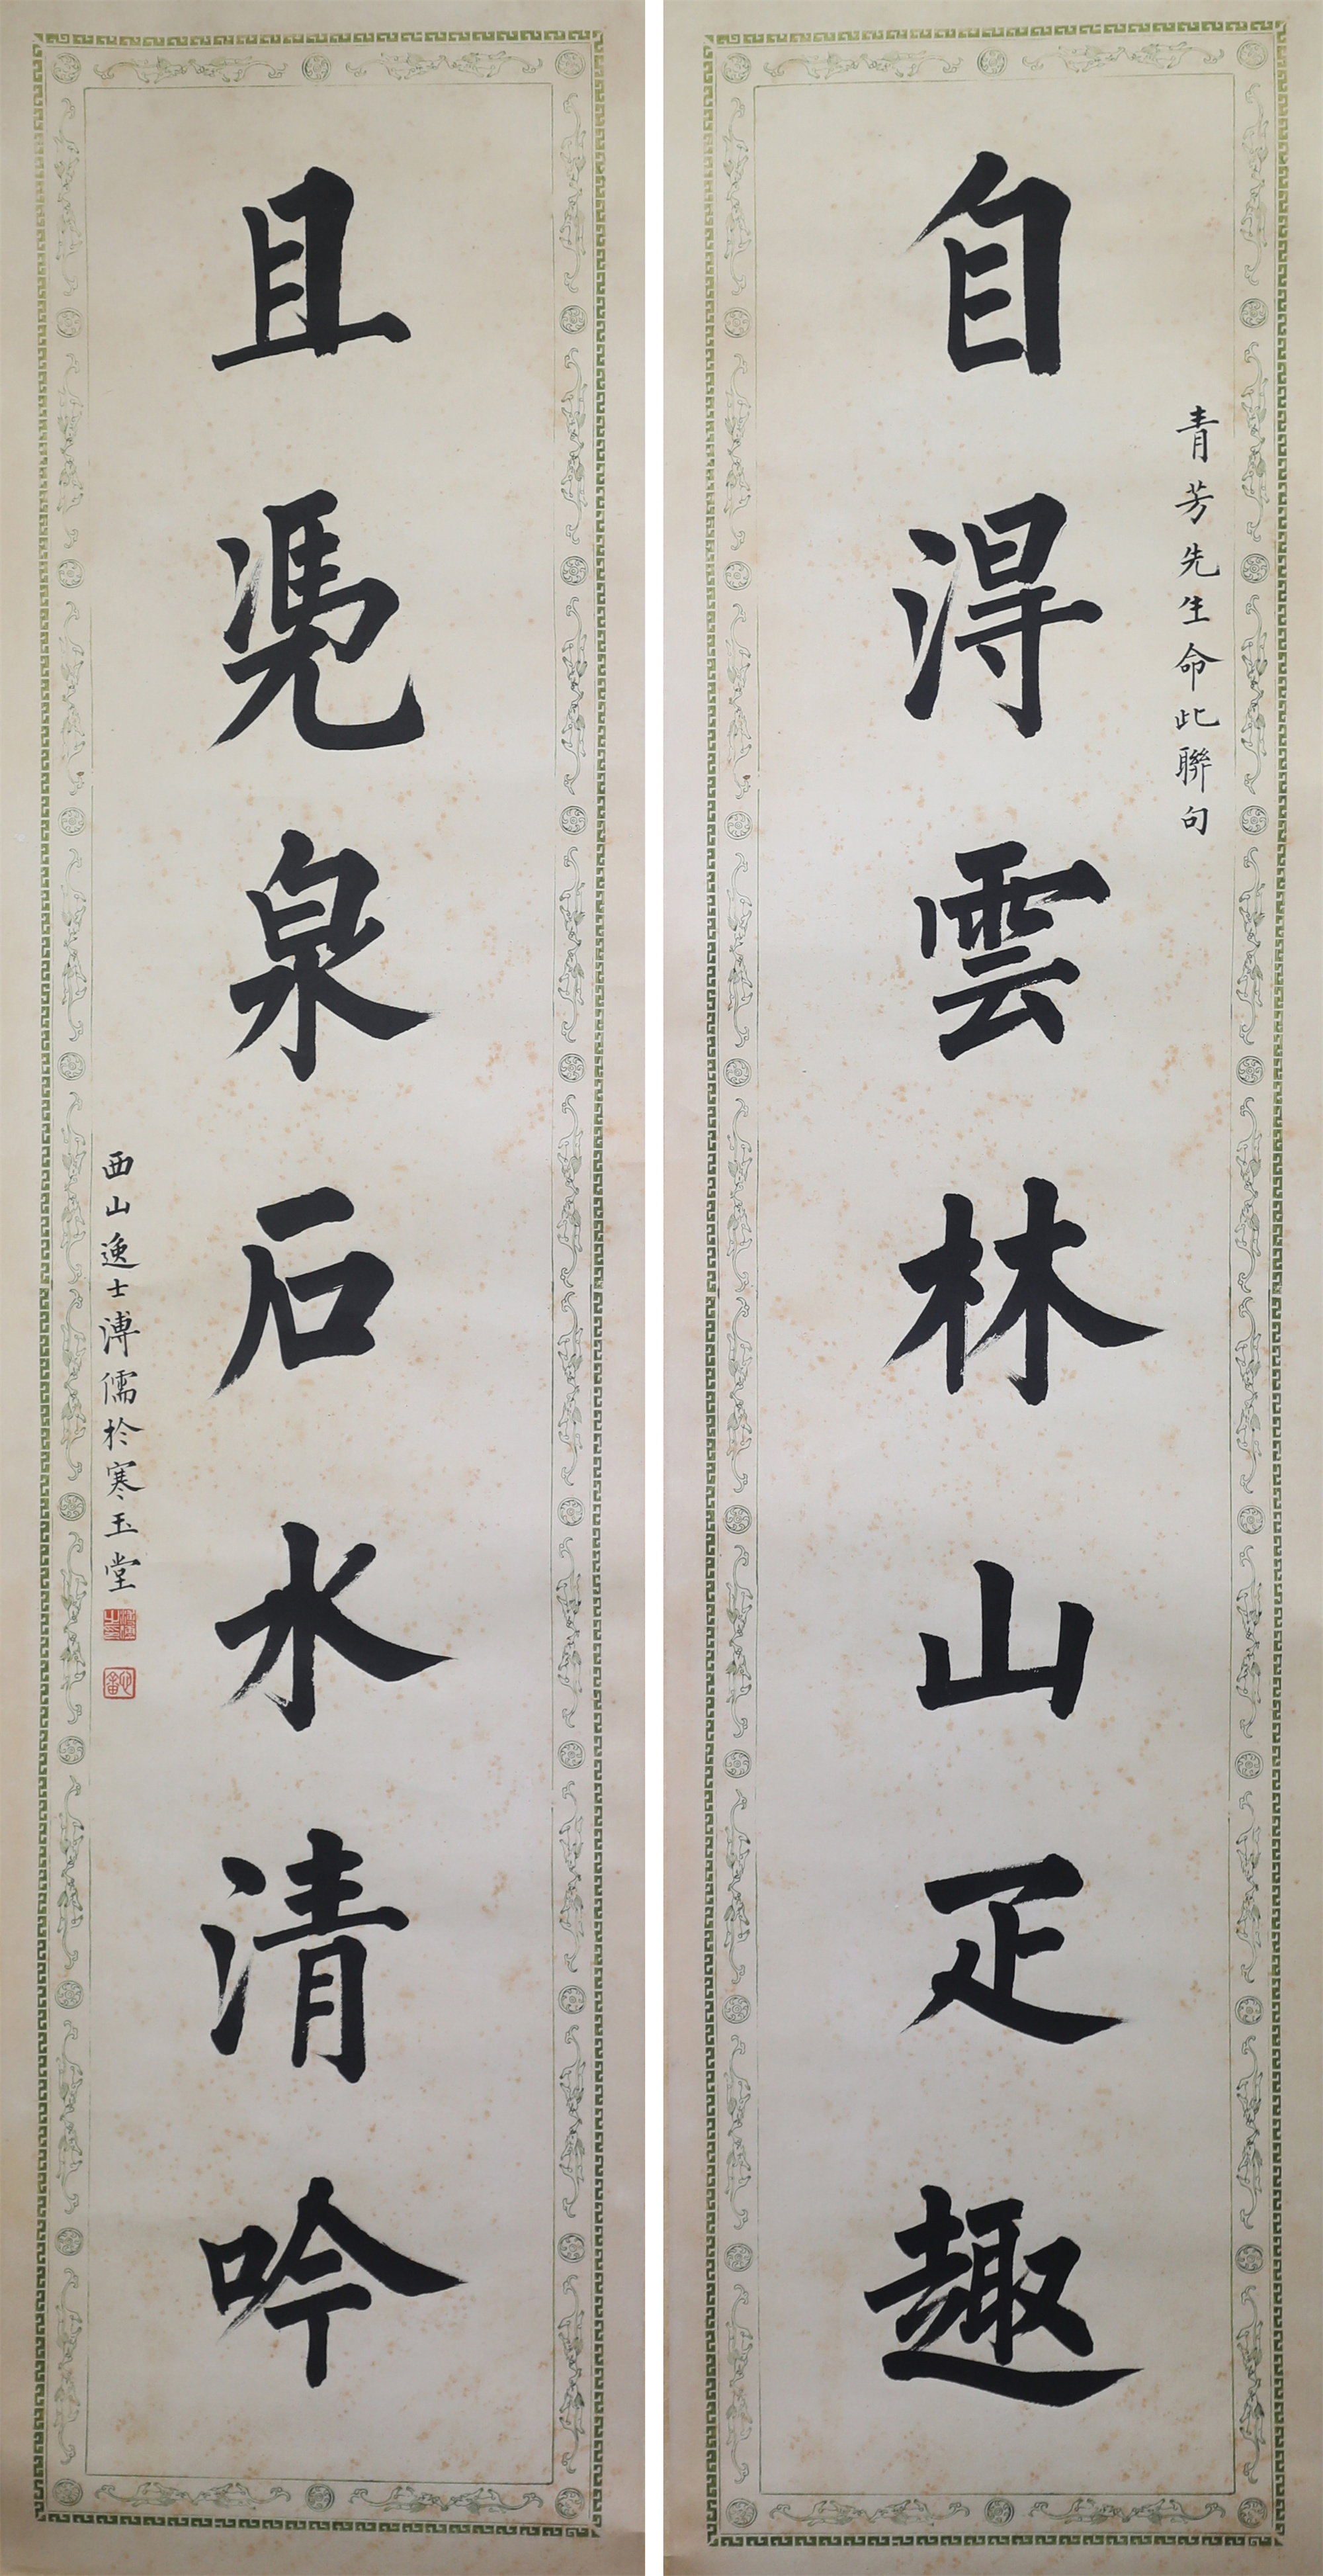 自得雲林山疋趣
青芳先生命此聯句
且凭泉石水清吟
西山逸士溥儒於寒玉堂